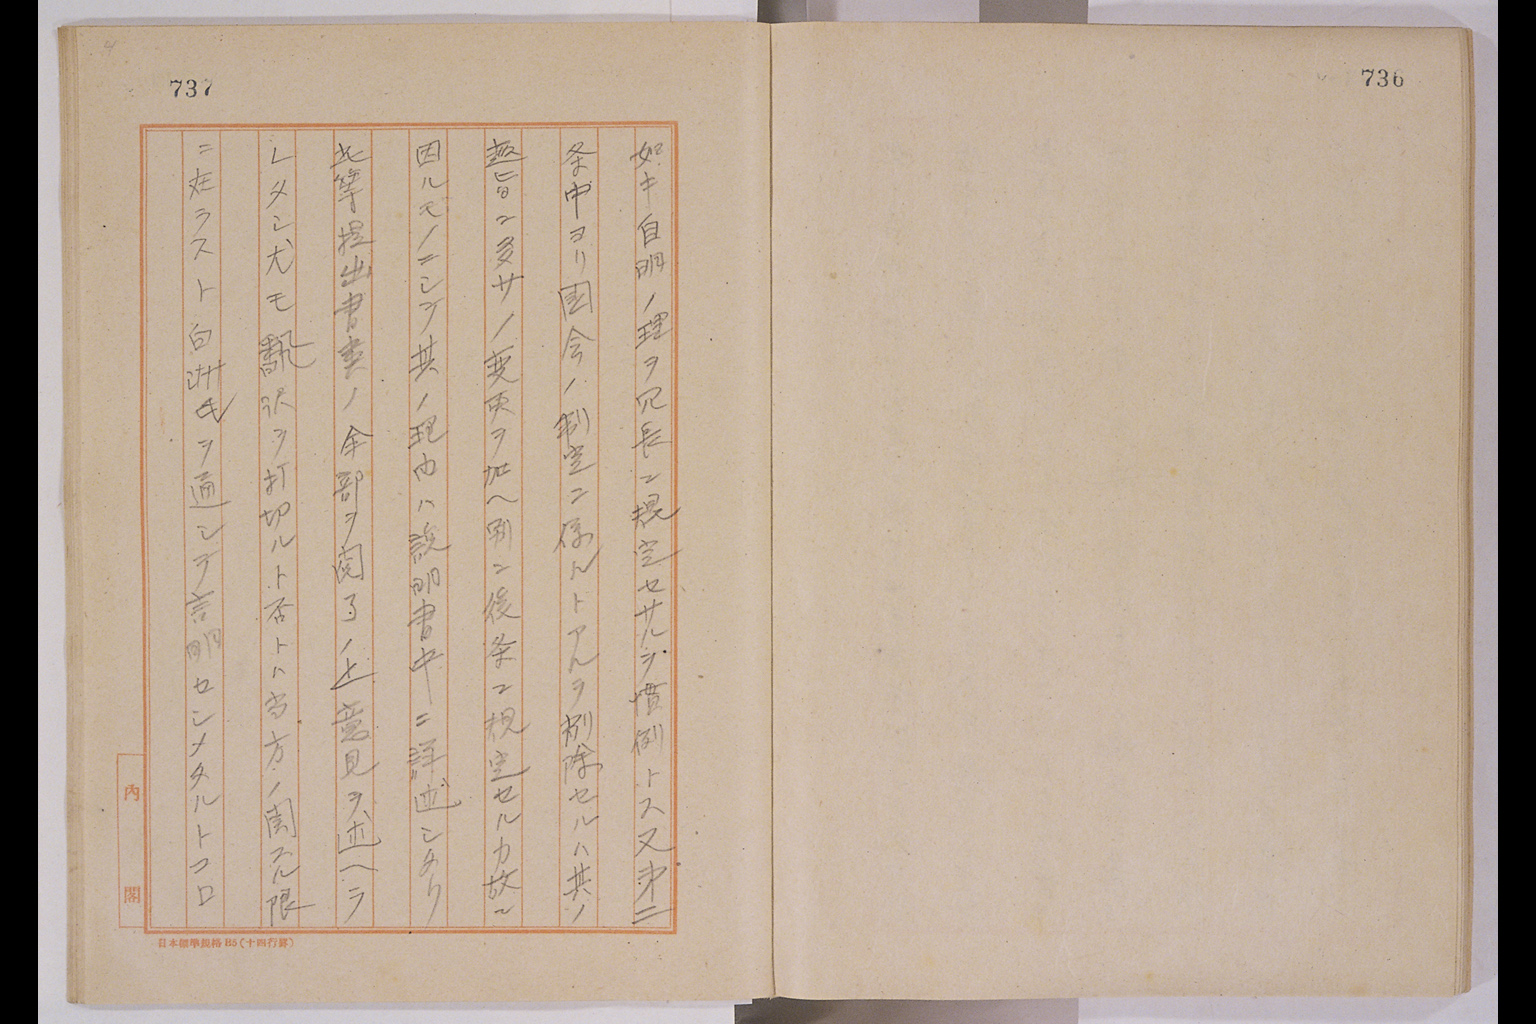 736
737
如キ自明ノ理ヲ冗長ニ規定セサルヲ慣例トス又第二
条中ヨリ国会ノ制定ニ係ルトアルヲ削除セルハ其ノ
趣旨ニ多少ノ変更ヲ加ヘ別ニ後条ニ規定セルカ故ニ
因ルモノニシテ其ノ理由ハ説明書中ニ詳述シタリ
此等提出書類ノ全部ヲ閲了ノ上意見ヲ述ヘラ
レタシ尤モ翻訳ヲ打切ルト否トハ当方ノ関スル限
ニ在ラスト白洲氏ヲ通シテ言明センメタルトコロ
内閣
日本標準規格B5(十四行罫)